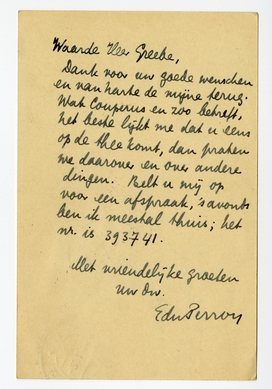 Waarde Heer Greebe,
Dank voor uw goede wenschen
en van harte de mijne terug.
Wat Couperus en zoo betreft,
het beste lijkt me dat u eens
op de thee komt, dan praten
we daarover en over andere
dingen. Belt u mij op
voor een afspraak, 's avonds
ben ik meestal thuis; het
nr. is 393741.
Met vriendelijke groeten
uw dw.
EduPerron